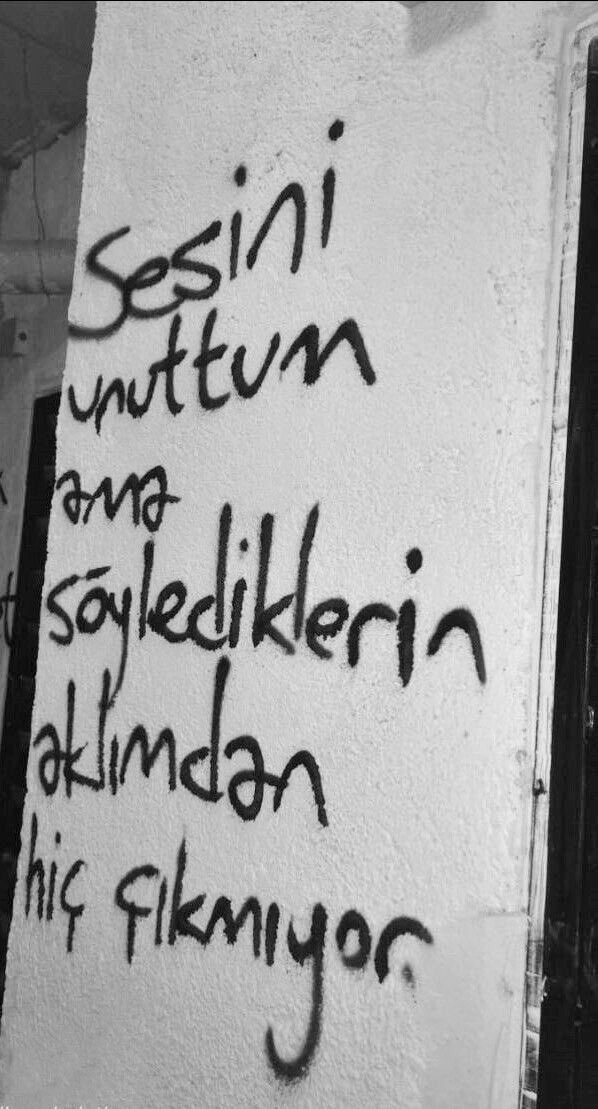 Sesini
unuttum
ama
söylediklerin
aklımdan
hiç çıkmıyor.